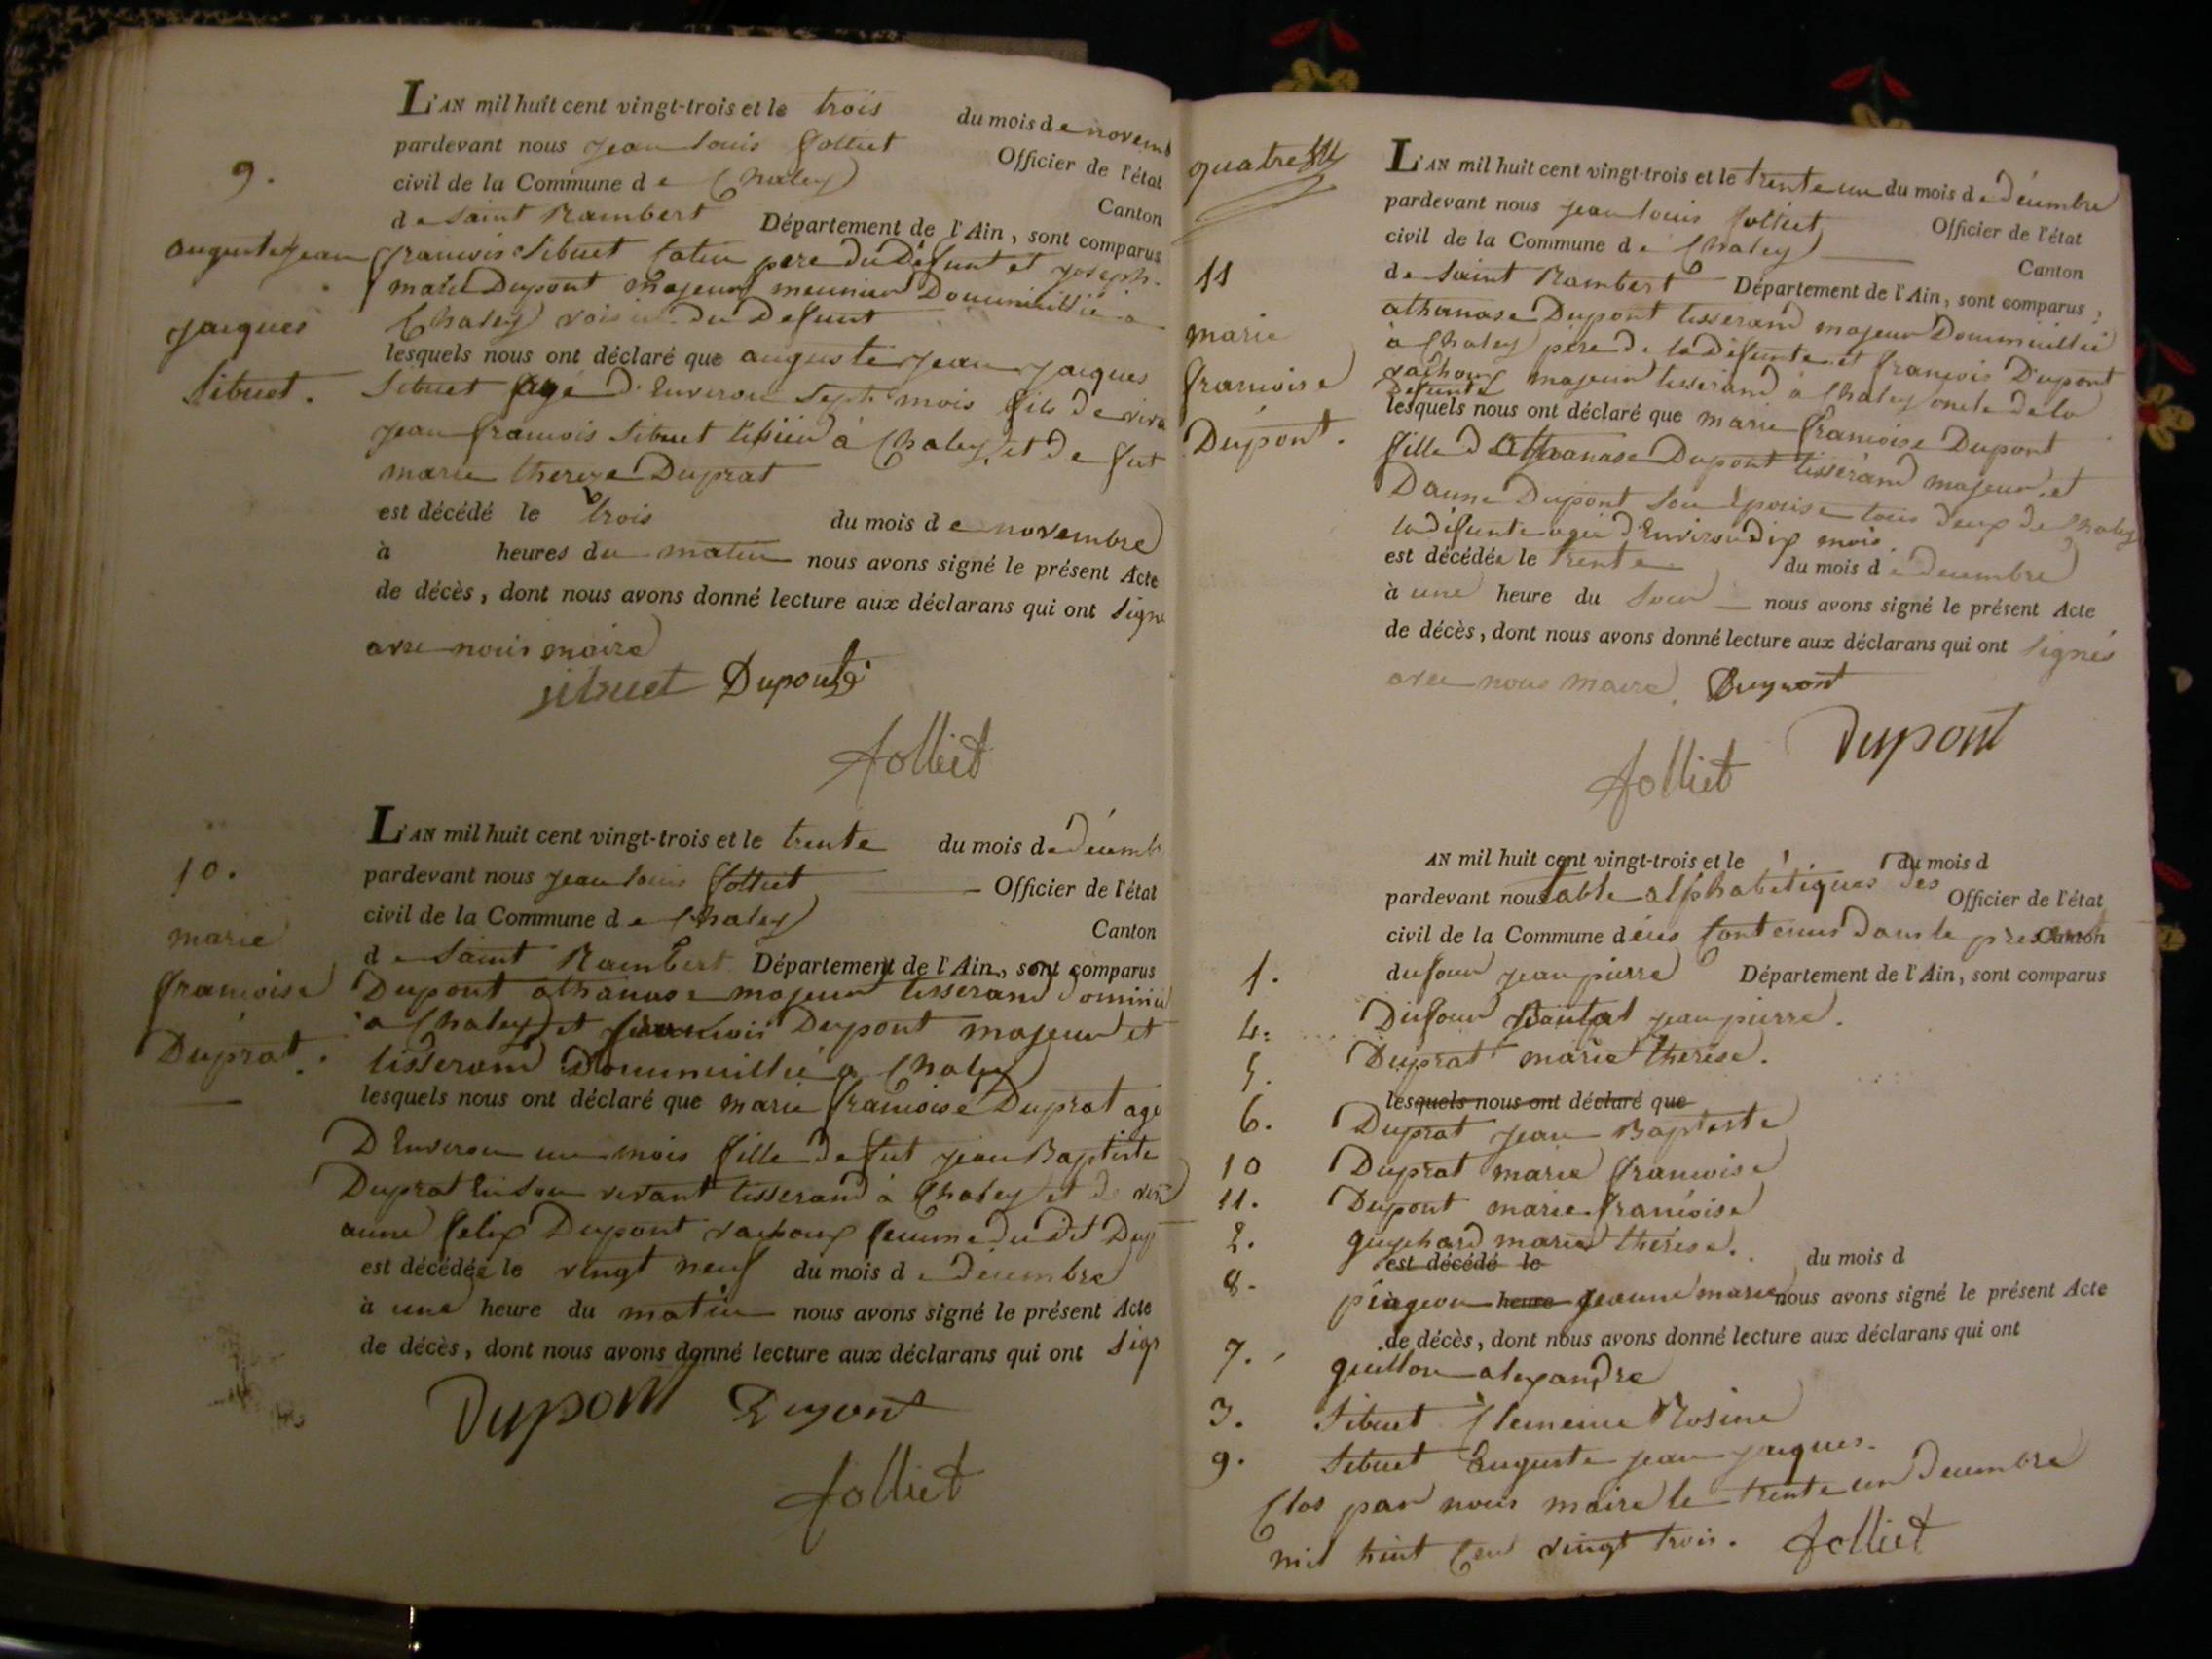 9.
auguste jean
jacques
Sibuet.
L'AN mil huit cent vingt-trois et le trois du mois de novemb
pardevant nous jean louis folliet Officier de l'état
civil de la Commune de Chaley Canton
de Saint Rambert Département de l'Ain, sont comparus
francois Sibuet pere du Défunt et joseph
marie Dupont majeur meunier Doumicillié a
Chaley voisin du Defunt
lesquels nous ont déclaré que auguste jean jacques
Sibuet agé d'Environ Sept mois fils de viva
jean francois Sibuet à Chaley et de fut
marie thereze Duprat
est décédé le trois du mois de novembre
à heures du matin nous avons signé le présent Acte
de décès, dont nous avons donné lecture aux déclarans qui ont signe
avec nous maire
sibuet Dupont
folliet
10.
marie
francoise
Duprat.
L'AN mil huit cent vingt-trois et le trente du mois de décemb
pardevant nous jean louis folliet Officier de l'état
civil de la Commune de Chaley Canton
de Saint Rambert Département de l'Ain, sont comparus
Dupont athanase majeur tisserand domicil
a Chaley et francois Dupont majeur et
tisserand Doumicillié a Chaley
lesquels nous ont déclaré que marie francoise Duprat agé
D'Environ un mois fille de fut jean Baptiste
Duprat En Son vivant tisserand à Chaley et de
anne felix Dupont vachoux femme du dit Dup
est décédée le vingt neuf du mois de décembre
à une heure du matin nous avons signé le présent Acte
de décès, dont nous avons donné lecture aux déclarans qui ont Sign
Dupont Dupont
folliet
quatre
11
marie
francoise
Dupont.
L'AN mil huit cent vingt-trois et le trente un du mois de décembre
pardevant nous jean louis folliet Officier de l'état
civil de la Commune de Chaley Canton
de Saint Rambert Département de l'Ain, sont comparus,
athanase Dupont tisserand majeur Doumicillié
à Chaley père de la Défunte et francois Dupont
vachoux majeur tisserand à Chaley oncle de la
Defunte
lesquels nous ont déclaré que marie francoise Dupont
fille d'Athanase Dupont tisserand majeur et
D'anne Dupont Son épouse tous deux de Chaley
la défunte agée d'Environ dix mois
est décédée le trente du mois de décembre
à une heure du Soir nous avons signé le présent Acte
de décès, dont nous avons donné lecture aux déclarans qui ont signés
avec nous maire Dupont
Dupont
folliet
AN mil huit cent vingt-trois et le du mois d
pardevant nous table alphabetiques des Officier de l'état
civil de la Commune d écès Contenus dans le present Canton
1. dufour jean pierre Département de l'Ain, sont comparus
4. Dufour jean pierre.
5. Duprat marie therese.
lesquels nous ont déclaré que
6. Duprat jean Baptiste
10 Duprat marie francoise
11. Dupont marie francoise
2. guychard marie thérèse.
est décédé le du mois d
8. heure jeanne marie nous avons signé le présent Acte
de décès, dont nous avons donné lecture aux déclarans qui ont
7. guillon alexandre
3. Sibuet Clemence Rosine
9. Sibuet Auguste jean jacques.
Clos par nous maire le trente un decembre
mil huit Cent vingt trois. folliet